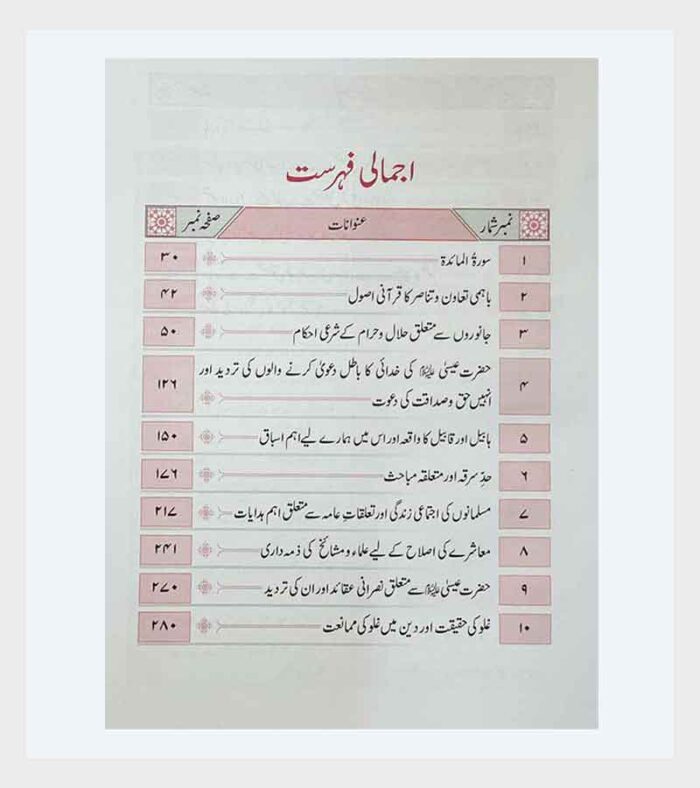 اجمالی فہرست
نمبر شمار عنوانات صفحہ نمبر
۱ سورۃ المائدۃ ۳۰
۲ باہمی تعاون و تناصر کا قرآنی اصول ۴۲
۳ جانوروں سے متعلق حلال و حرام کے شرعی احکام ۵۰
۴ حضرت عیسیٰ علیہ السلام کی خدائی کا باطل دعویٰ کرنے والوں کی تردید اور
انہیں حق و صداقت کی دعوت ۱۲۶
۵ ہابیل اور قابیل کا واقعہ اور اس میں ہمارے لیے اہم اسباق ۱۵۰
۶ حدِ سرقہ اور متعلقہ مباحث ۱۷۶
۷ مسلمانوں کی اجتماعی زندگی اور تعلقاتِ عامہ سے متعلق اہم ہدایات ۲۱۷
۸ معاشرے کی اصلاح کے لیے علماء و مشائخ کی ذمہ داری ۲۴۱
۹ حضرت عیسیٰ علیہ السلام سے متعلق نصرانی عقائد اور ان کی تردید ۲۷۰
۱۰ غلو کی حقیقت اور دین میں غلو کی ممانعت ۲۸۰